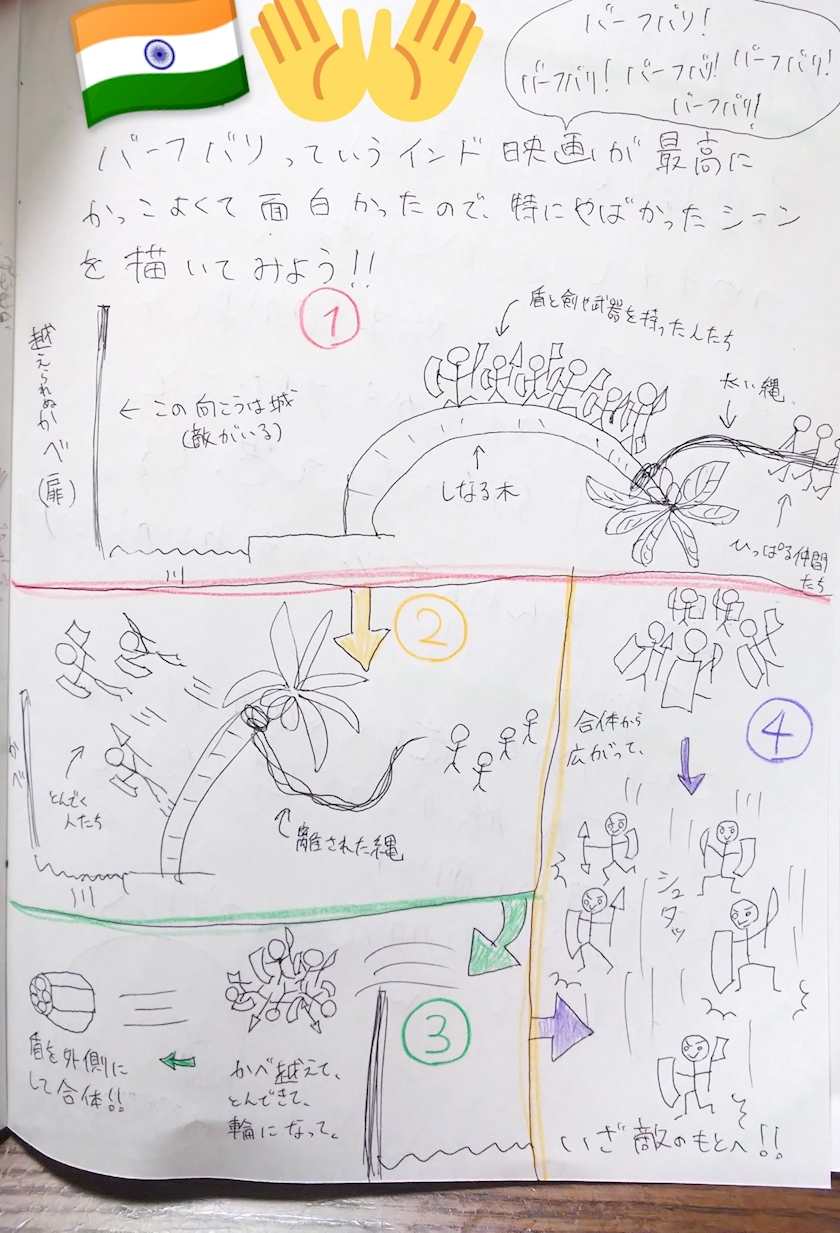 バーフバリ!
バーフバリ! バーフバリ! バーフバリ!
バーフバリ!
バーフバリっていうインド映画が最高に
かっこよくて面白かったので、特にやばかったシーン
を描いてみよう!!
①
盾と剣や武器を持った人たち
越えられぬかべ(扉)
← この向こうは城
(敵がいる)
長い縄
しなる木
ひっぱる仲間
たち
川
②
かべ
とんでく
人たち
離された縄
川
③
かべ越えて、
とんできて、
輪になって。
盾を外側に
して合体!!
④
合体から
広がって、
シュタッ
いざ敵のもとへ!!